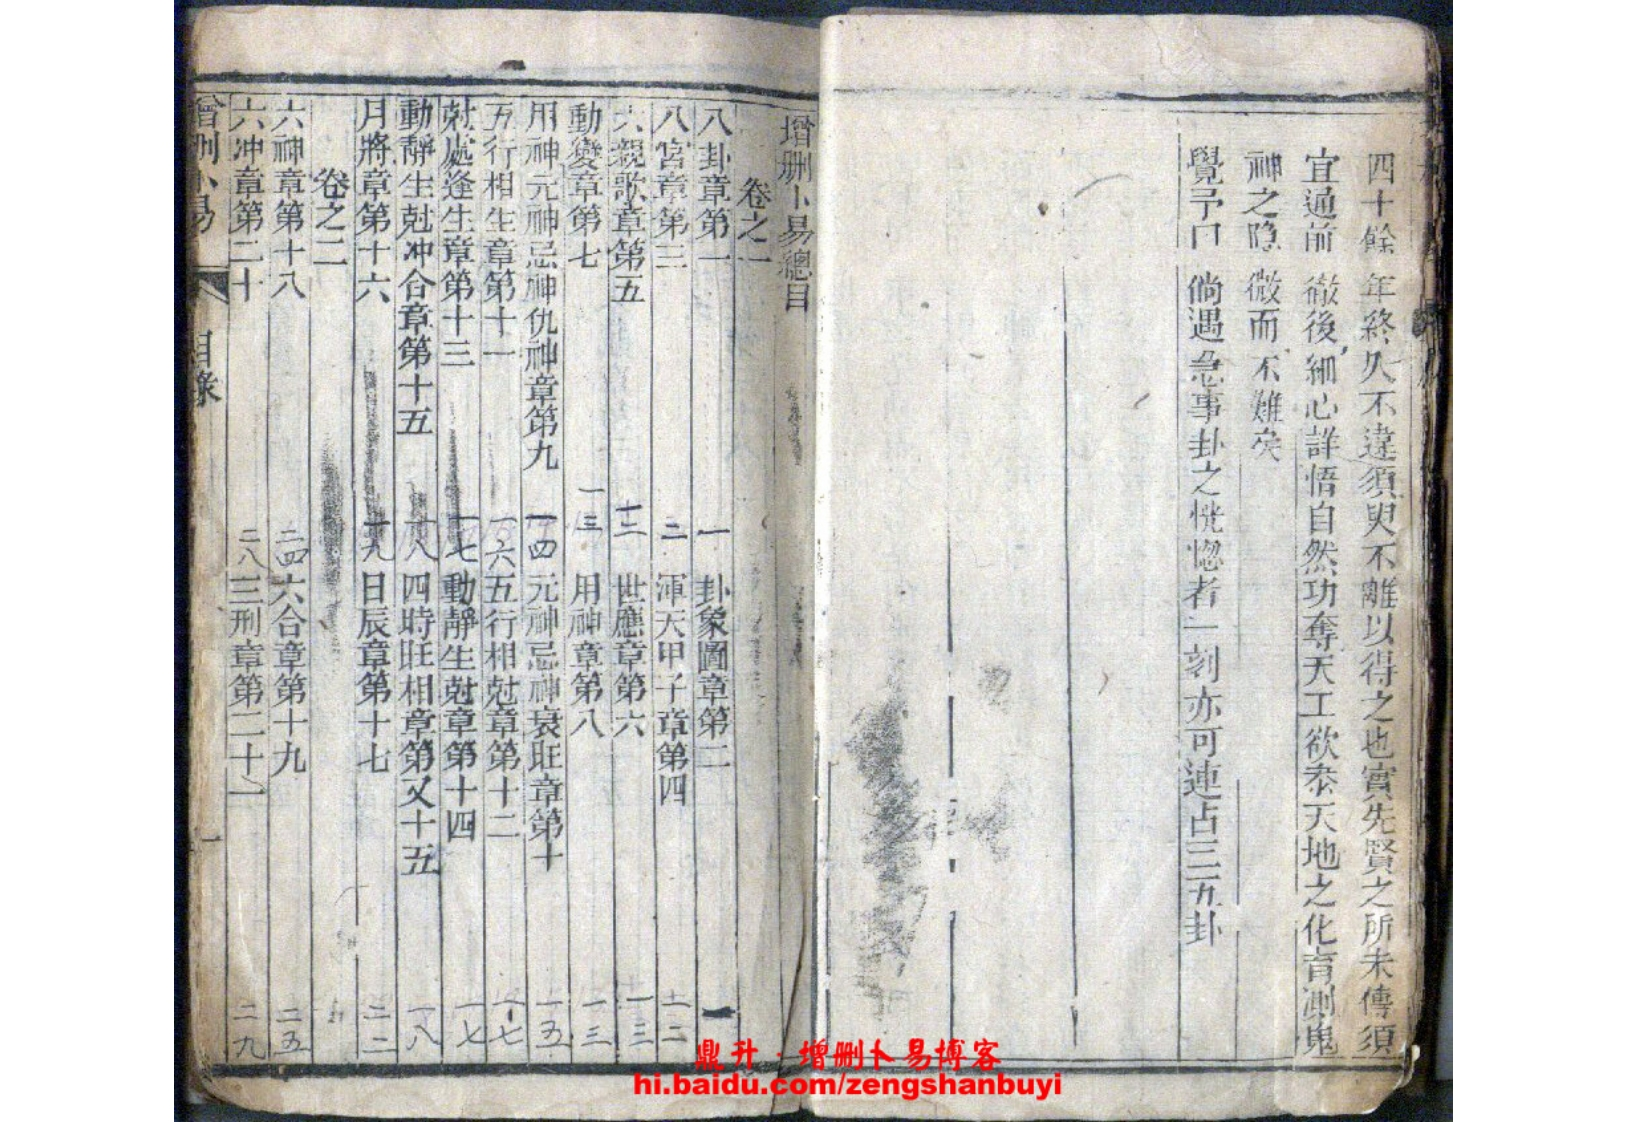 四十餘年終久不違須臾不離以得之也實先賢之所未傳須
宜通前徹後細心詳悟自然功奪天工欲叅天地之化育測鬼
神之隐微而不難矣
覺子曰倘遇急事卦之恍惚者一刻亦可連占三五卦
增删卜易總目
卷之一
八卦章第一 一 卦象圖章第二 一
八宮章第三 二 渾天甲子章第四 十二
六親歌章第五 十二 世應章第六 十三
動變章第七 一三 用神章第八 一三
用神元神忌神仇神章第九 一四 元神忌神衰旺章第十 一五
五行相生章第十一 一六 五行相尅章第十二 一七
尅處逢生章第十三 一七 動靜生尅章第十四 一七
動靜生尅冲合章第十五 一八 四時旺相章第又十五 一八
月將章第十六 一九 日辰章第十七 二二
卷之二
六神章第十八 二四 六合章第十九 二五
六冲章第二十 二八 三刑章第二十一 二九
增删卜易 目錄 一
鼎升·增删卜易博客
hi.baidu.com/zengshanbuyi